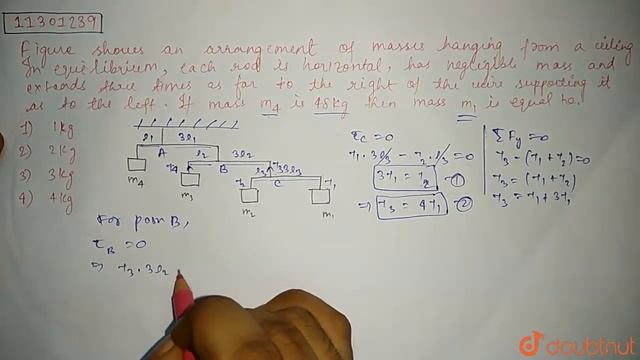 11301239
Figure shows an arrangement of masses hanging from a ceiling
In equilibrium, each rod is horizontal, has negligible mass and
extends three times as far to the right of the wire supporting it
as to the left. If mass m4 is 48kg then mass m1 is equal to.
1) 1kg
2) 2kg
3) 3kg
4) 4kg
l1 3l1
A
l2 3l2
B
m4
m3
C
m2
m1
τC = 0
T1.3l3 - T2.l3 = 0
3T1 = T2 ①
⇒ T3 = 4T1 ②
ΣFy = 0
T3 - (T1 + T2) = 0
T3 = (T1 + T2)
T3 = T1 + 3T1
For point B,
τB = 0
⇒ T3.3l2
doubtnut